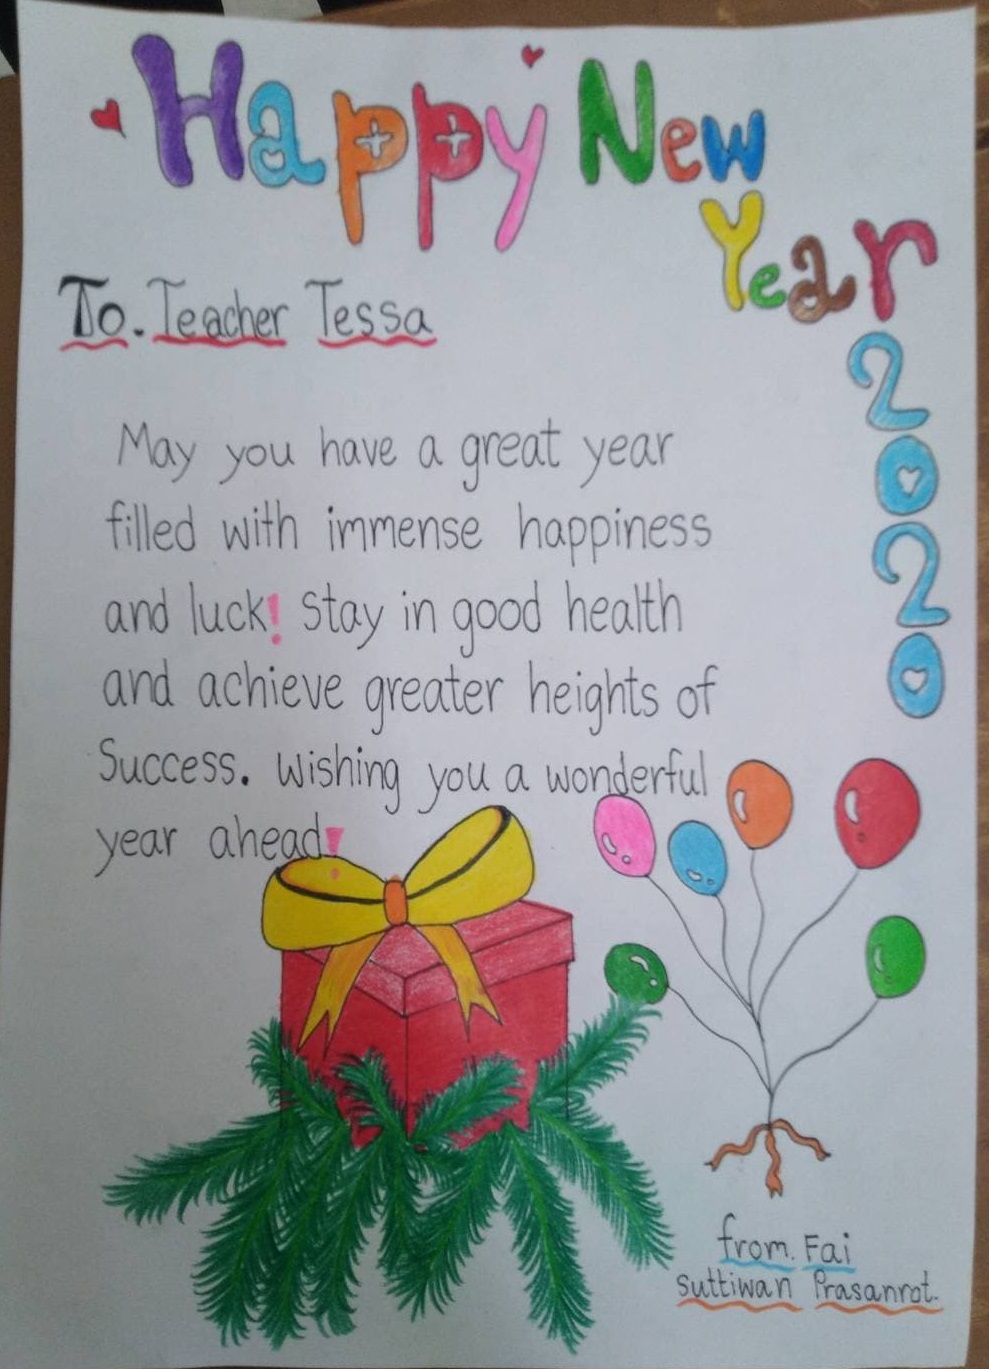 Happy New
Year
2020
To. Teacher Tessa
May you have a great year
filled with immense happiness
and luck! Stay in good health
and achieve greater heights of
Success. Wishing you a wonderful
year ahead!
from. Fai
Suttiwan Prasanrot.